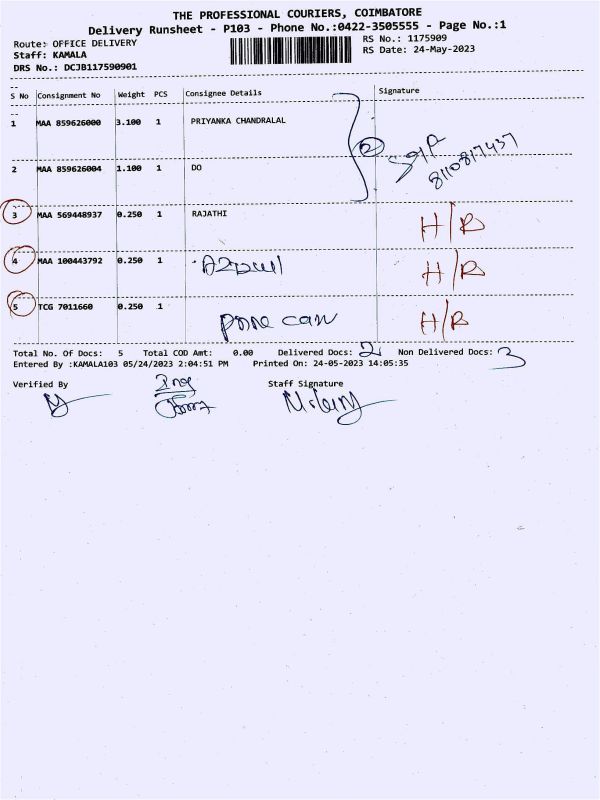 THE PROFESSIONAL COURIERS, COIMBATORE
Delivery Runsheet - P103 - Phone No.:0422-3505555 - Page No.:1
Route: OFFICE DELIVERY
RS No.: 1175909
Staff: KAMALA
RS Date: 24-May-2023
DRS No.: DCJB117590901
S No Consignment No Weight PCS Consignee Details Signature
1 MAA 859626000 3.100 1 PRIYANKA CHANDRALAL
2
8110817437
2 MAA 859626004 1.100 1 DO
3 MAA 569448937 0.250 1 RAJATHI H/R
4 MAA 100443792 0.250 1 H/R
5 TCG 7011660 0.250 1 H/R
Total No. Of Docs: 5 Total COD Amt: 0.00 Delivered Docs: 2 Non Delivered Docs: 3
Entered By :KAMALA103 05/24/2023 2:04:51 PM Printed On: 24-05-2023 14:05:35
Verified By Staff Signature